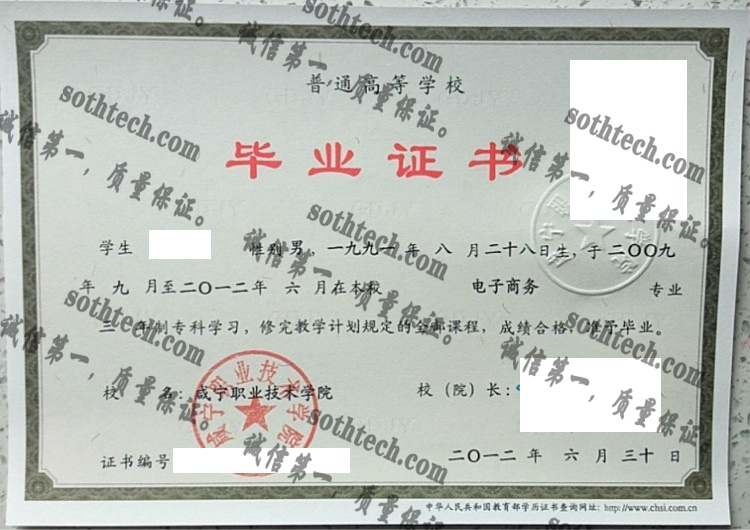 普通高等学校
毕业证书
学生 性别 男 一九九一年 八 月二十八日生，于二〇〇九
年 九 月至二〇一二年 六 月在本校 电子商务 专业
三 年制专科学习，修完教学计划规定的全部课程，成绩合格，准予毕业。
校 名：咸宁职业技术学院 校（院）长：
证书编号 二〇一二 年 六 月 三十 日
中华人民共和国教育部学历证书查询网址：http://www.chsi.com.cn
咸宁职业技术学院
sothtech.com
诚信第一，质量保证。
sothtech.com
诚信第一，质量保证。
sothtech.com
诚信第一，质量保证。
sothtech.com
诚信第一，质量保证。
sothtech.com
诚信第一，质量保证。
sothtech.com
诚信第一，质量保证。
sothtech.com
诚信第一，质量保证。
sothtech.com
诚信第一，质量保证。